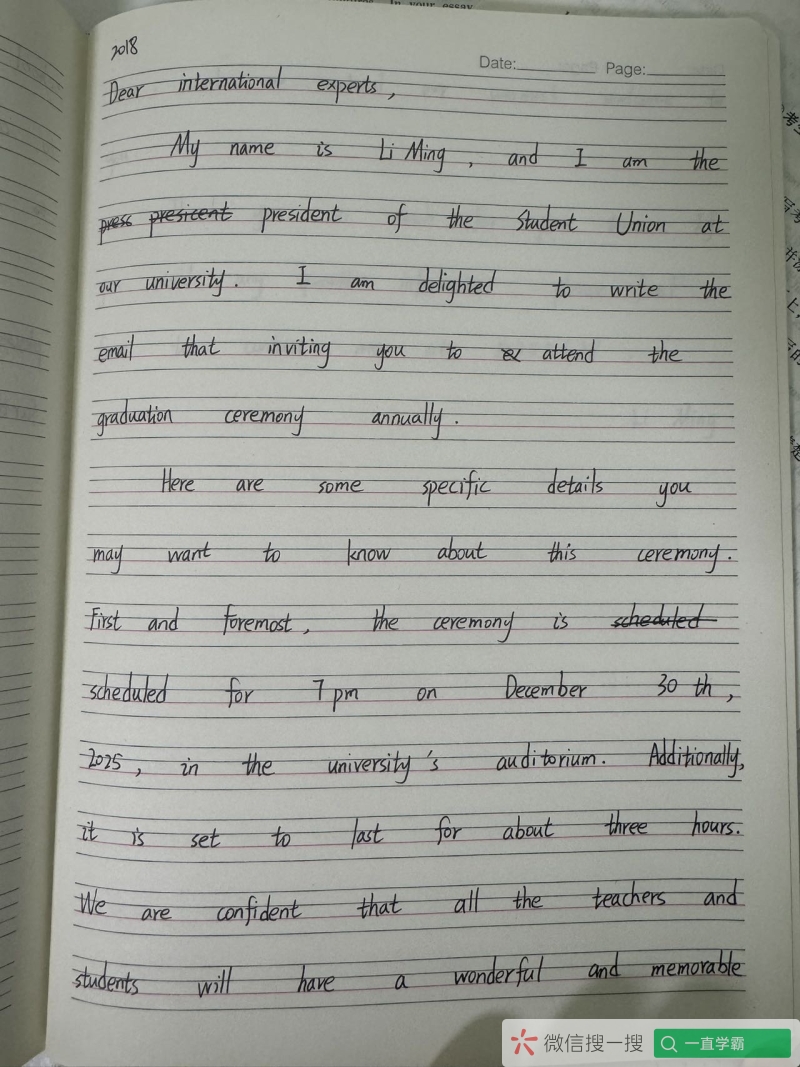 tures. In your essay
2018
Date: Page:
Dear international experts,
My name is Li Ming, and I am the
press presitent president of the Student Union at
our university. I am delighted to write the
email that inviting you to ex attend the
graduation ceremony annually.
Here are some specific details you
may want to know about this ceremony.
First and foremost, the ceremony is scheduled
scheduled for 7 pm on December 30 th,
2025, in the university's auditorium. Additionally,
it is set to last for about three hours.
We are confident that all the teachers and
students will have a wonderful and memorable
微信搜一搜
一直学霸